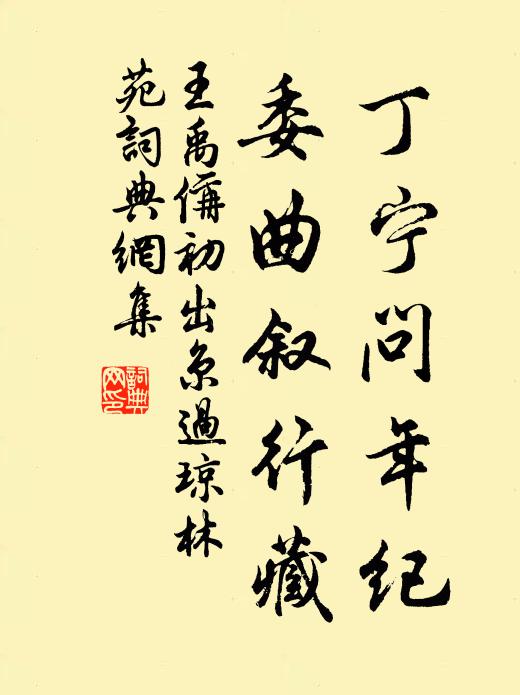 丁宁问年纪
委曲叙行藏
王禹偁初出京過琼林
苑詞典網集
詞典
网印